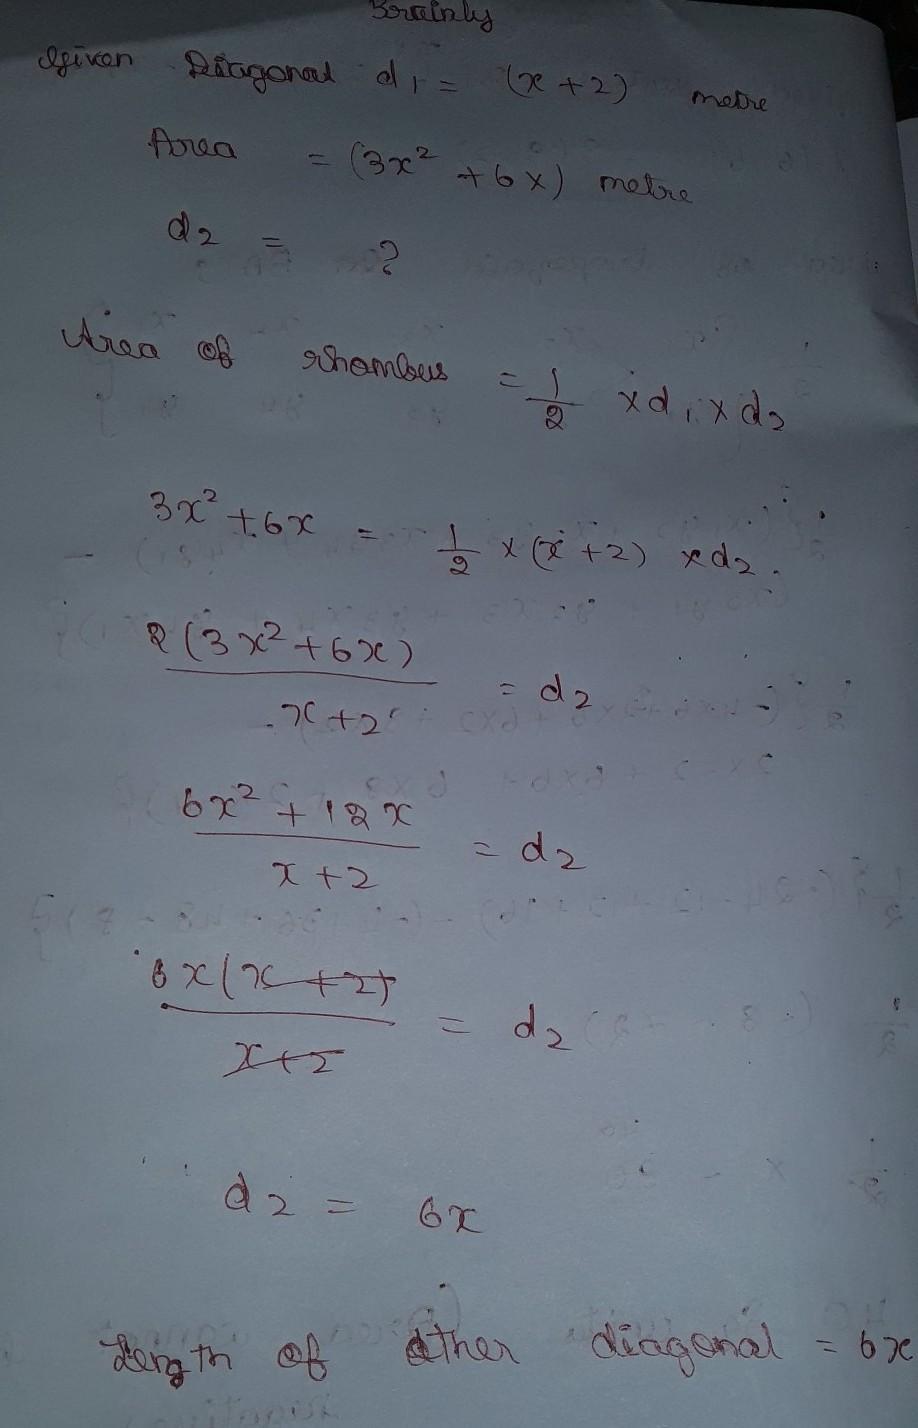 Brainly
Given Diagonal d₁ = (x + 2) metre
Area = (3x² + 6x) metre
d₂ = ?
Area of rhombus = 1/2 × d₁ × d₂
3x² + 6x = 1/2 × (x + 2) × d₂.
2(3x² + 6x)/x + 2 = d₂
6x² + 12x/x + 2 = d₂
6x(x + 2)/x + 2 = d₂
d₂ = 6x
Length of other diagonal = 6x